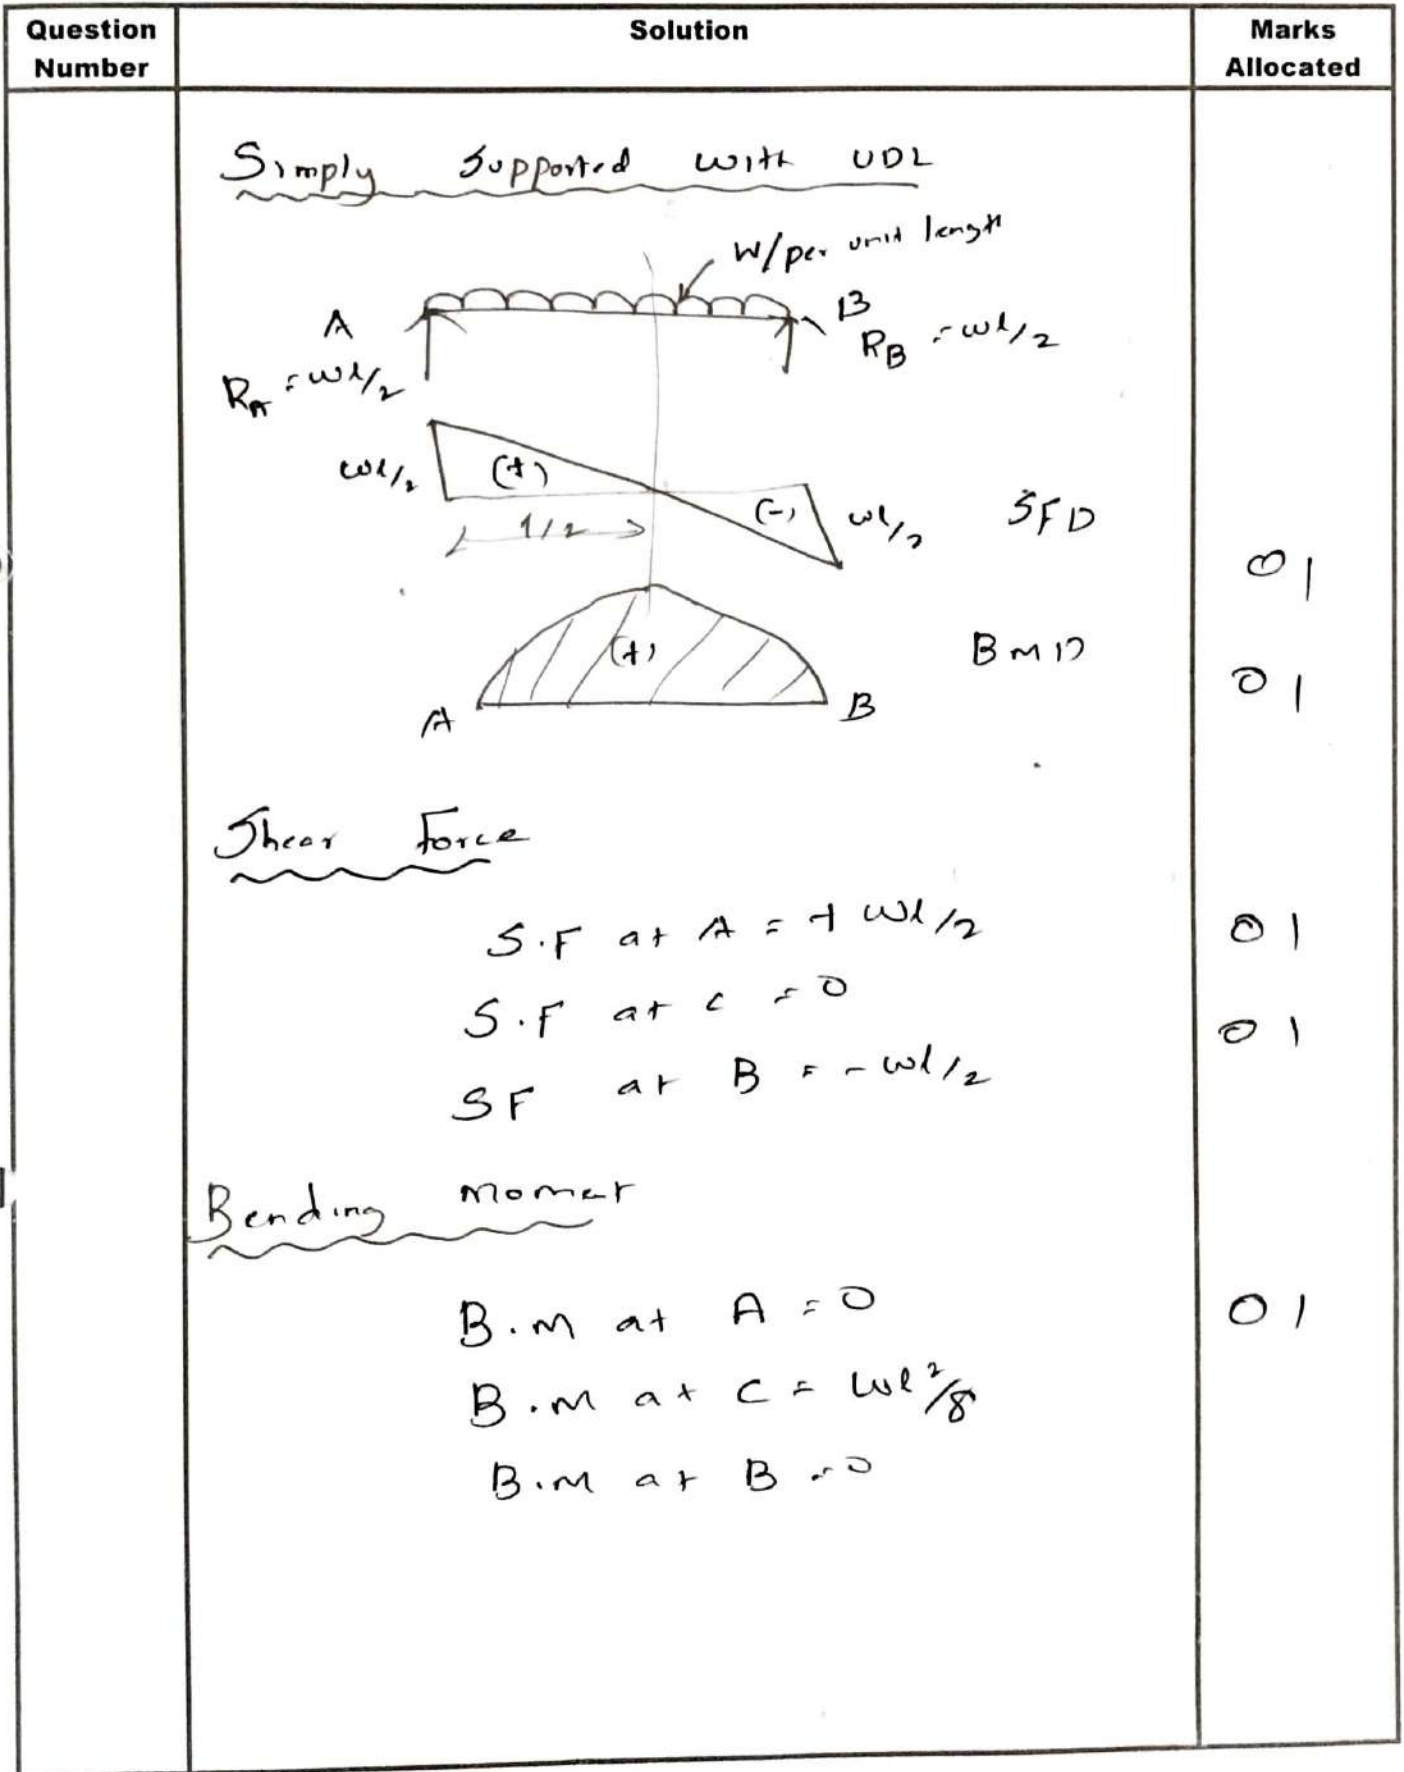 Question Number
Solution
Marks Allocated
Simply Supported with UDL
W/per unit length
A
B
RA = wl/2
RB = wl/2
wl/2
(+)
(-)
wl/2
SFD
1/2
01
(+)
BMD
01
A
B
Shear Force
S.F at A = + wl/2
01
S.F at C = 0
01
SF at B = - wl/2
Bending moment
B.M at A = 0
01
B.M at C = wl²/8
B.M at B = 0